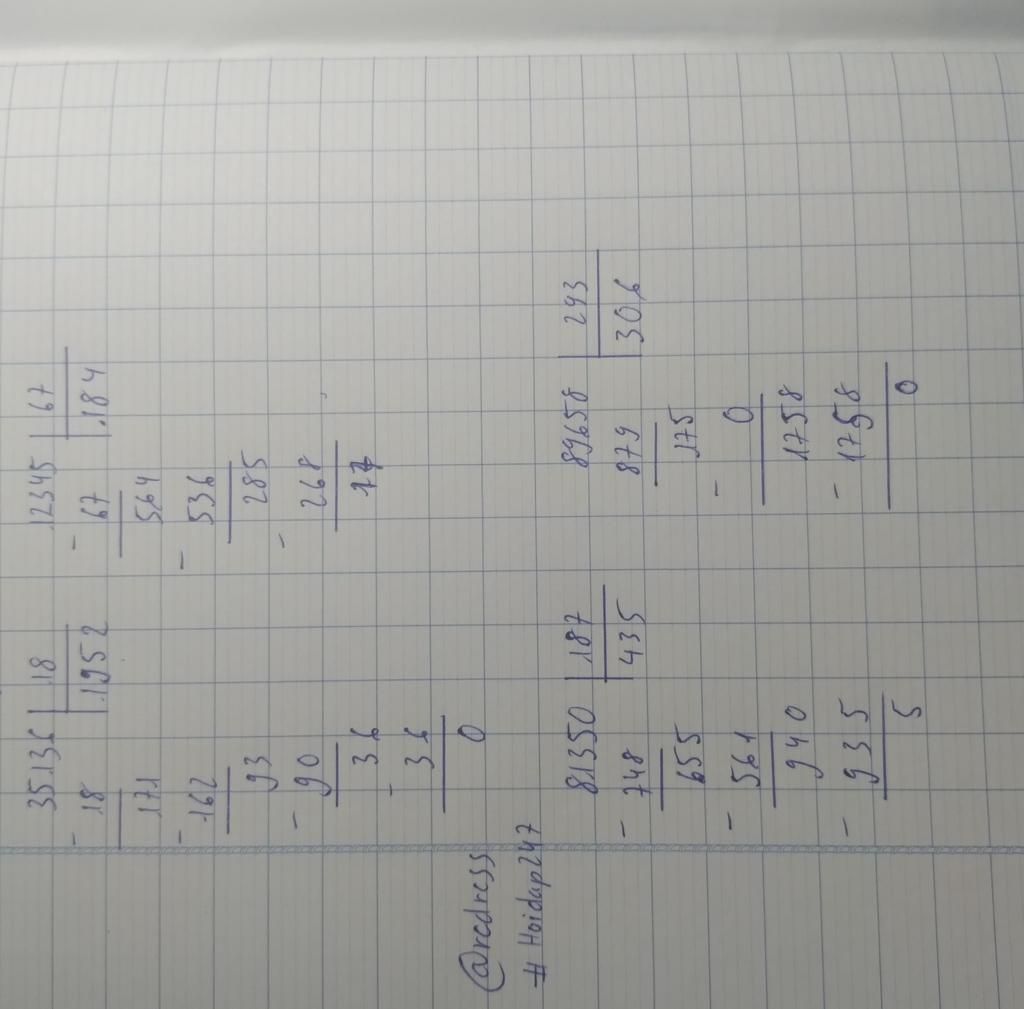 35136 | 18
- 18 | 1952
171
- 162
93
- 90
36
- 36
0
12345 | 67
- 67 | 184
564
- 536
285
- 268
17
@redress
# Hoidap247
81350 | 187
- 748 | 435
655
- 561
940
- 935
5
89658 | 293
879 | 306
175
- 0
1758
- 1758
0